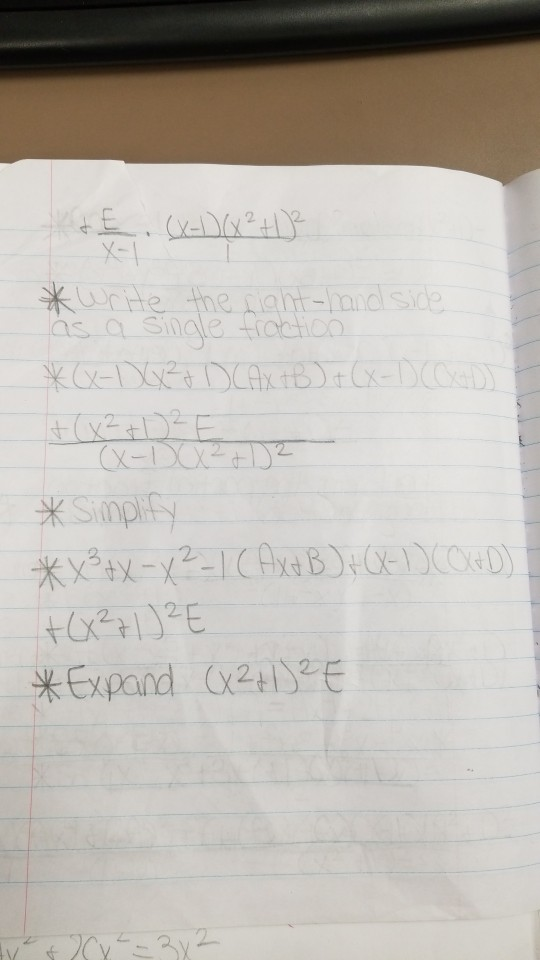 + E/x-1 · (x-1)(x²+1)²/1
* Write the right-hand side
as a single fraction
* (x-1)(x²+1)(Ax+B)+(x-1)(Cx+D)
+(x²+1)² E
(x-1)(x²+1)²
* Simplify
* x³+x-x²-1(Ax+B)+(x-1)(Cx+D)
+(x²+1)²E
* Expand (x²+1)²E
+ 2Cx² = 3x²